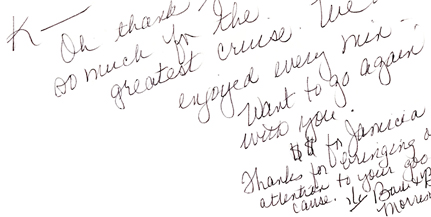 K—
Oh thank
so much for the
greatest cruise. We
enjoyed every min-
Want to go again
with you.
$$ for Jamicia
Thanks for bringing
attention to your goo
cause.
Morris